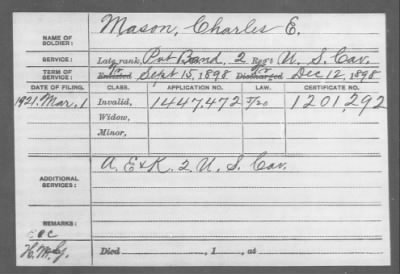 NAME OF SOLDIER: Mason, Charles E.
SERVICE: Late rank, Pvt Band, 2 Reg't U. S. Cav.
TERM OF SERVICE: Enlisted Sept 15, 1898 Discharged Dec 12, 1898
DATE OF FILING. CLASS. APPLICATION NO. LAW. CERTIFICATE NO.
1921. Mar. 1 Invalid, 1447,472 1201,292
Widow,
Minor,
ADDITIONAL SERVICES: A, E & K. 2 U. S. Cav.
REMARKS:
Died , 1 , at